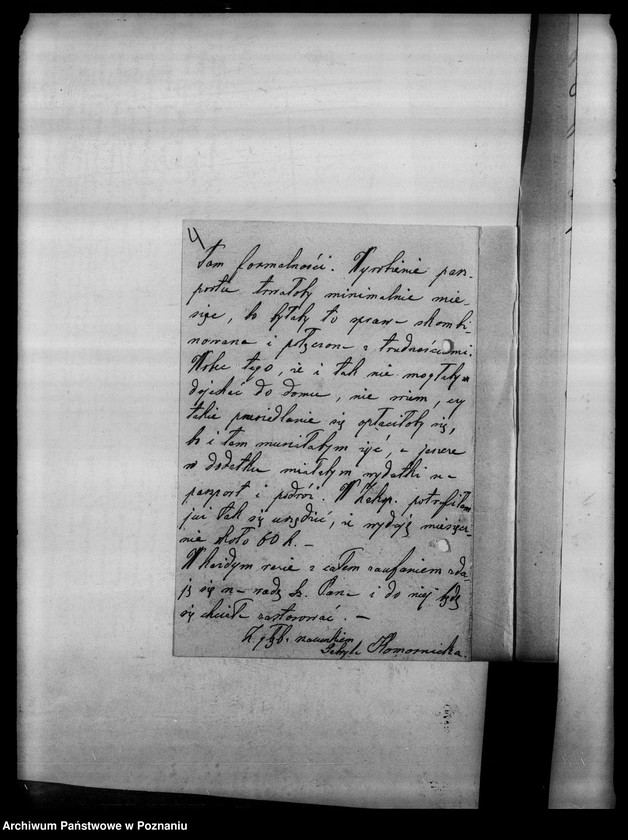 4
tam formalności. Wyrobienie pasz-
portu trwałoby minimalnie mie-
siąc, bo byłaby to sprawa skombi-
nowana i połączona z trudnościami.
Wobec tego, że i tak nie mogłabym
dojechać do domu, nie wiem, czy
takie przesiedlanie się opłaciłoby się,
bo i tam musiałabym żyć, a jeszcze
w dodatku miałabym wydatki na
paszport i podróż. W Zakop. potrafiłam
już tak się urządzić, że wydaję miesięcz-
nie około 60 k. —
W każdym razie z całem zaufaniem zda-
ję się na radę Sz. Pana i do niej będę
się chciała zastosować. —
Z głęb. szacunkiem
Słomornicka.
Archiwum Państwowe w Poznaniu